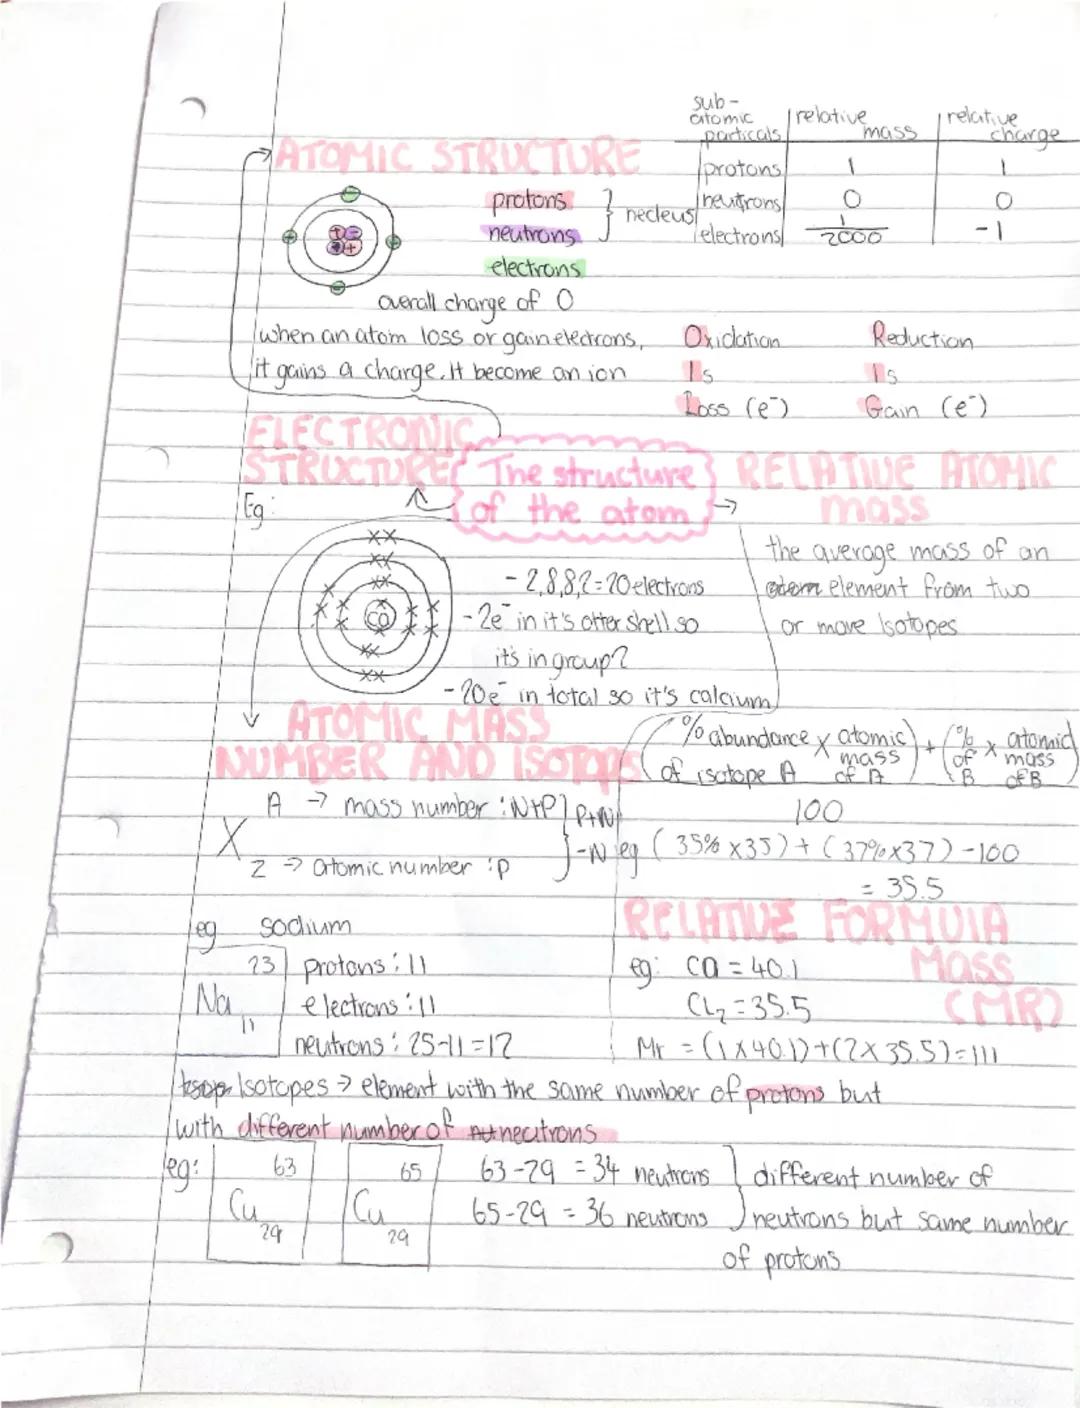 sub-
atomic
particals
relative mass
relative charge
protons 1 1
neutrons 0 0
electrons 1/2000 -1
ATOMIC STRUCTURE
protons
neutrons
necleus
electrons
overall charge of 0
when an atom loss or gain electrons,
it gains a charge. It become an ion
Oxidation
Is
Loss (e⁻)
Reduction
Is
Gain (e⁻)
The structure
of the atom
ELECTRONIC
STRUCTURE
Eg:
Ca
- 2,8,8,2 = 20 electrons
- 2e⁻ in it's otter shell so
it's in group 2
- 20e⁻ in total so it's calcium
RELATIVE ATOMIC
mass
the average mass of an
atom element from two
or more Isotopes
(% abundance of isotope A × atomic mass of A) + (% of B × atomic mass of B)
100
eg (35% x35) + (37%x37) -100
= 35.5
ATOMIC MASS
NUMBER AND ISOTOPS
X
A → mass number : N+P
Z → atomic number : p
P+N
-N
eg sodium
23
Na
11
protons : 11
electrons : 11
neutrons : 25-11 = 12
RELATIVE FORMULA
Mass
(MR)
eg: Ca = 40.1
CL₂ = 35.5
Mr = (1x40.1)+(2x35.5)=111
Isop Isotopes → element with the same number of protons but
with different number of neutrons
eg:
63
Cu
29
65
Cu
29
63-29 = 34 neutrons
65-29 = 36 neutrons
different number of
neutrons but same number
of protons